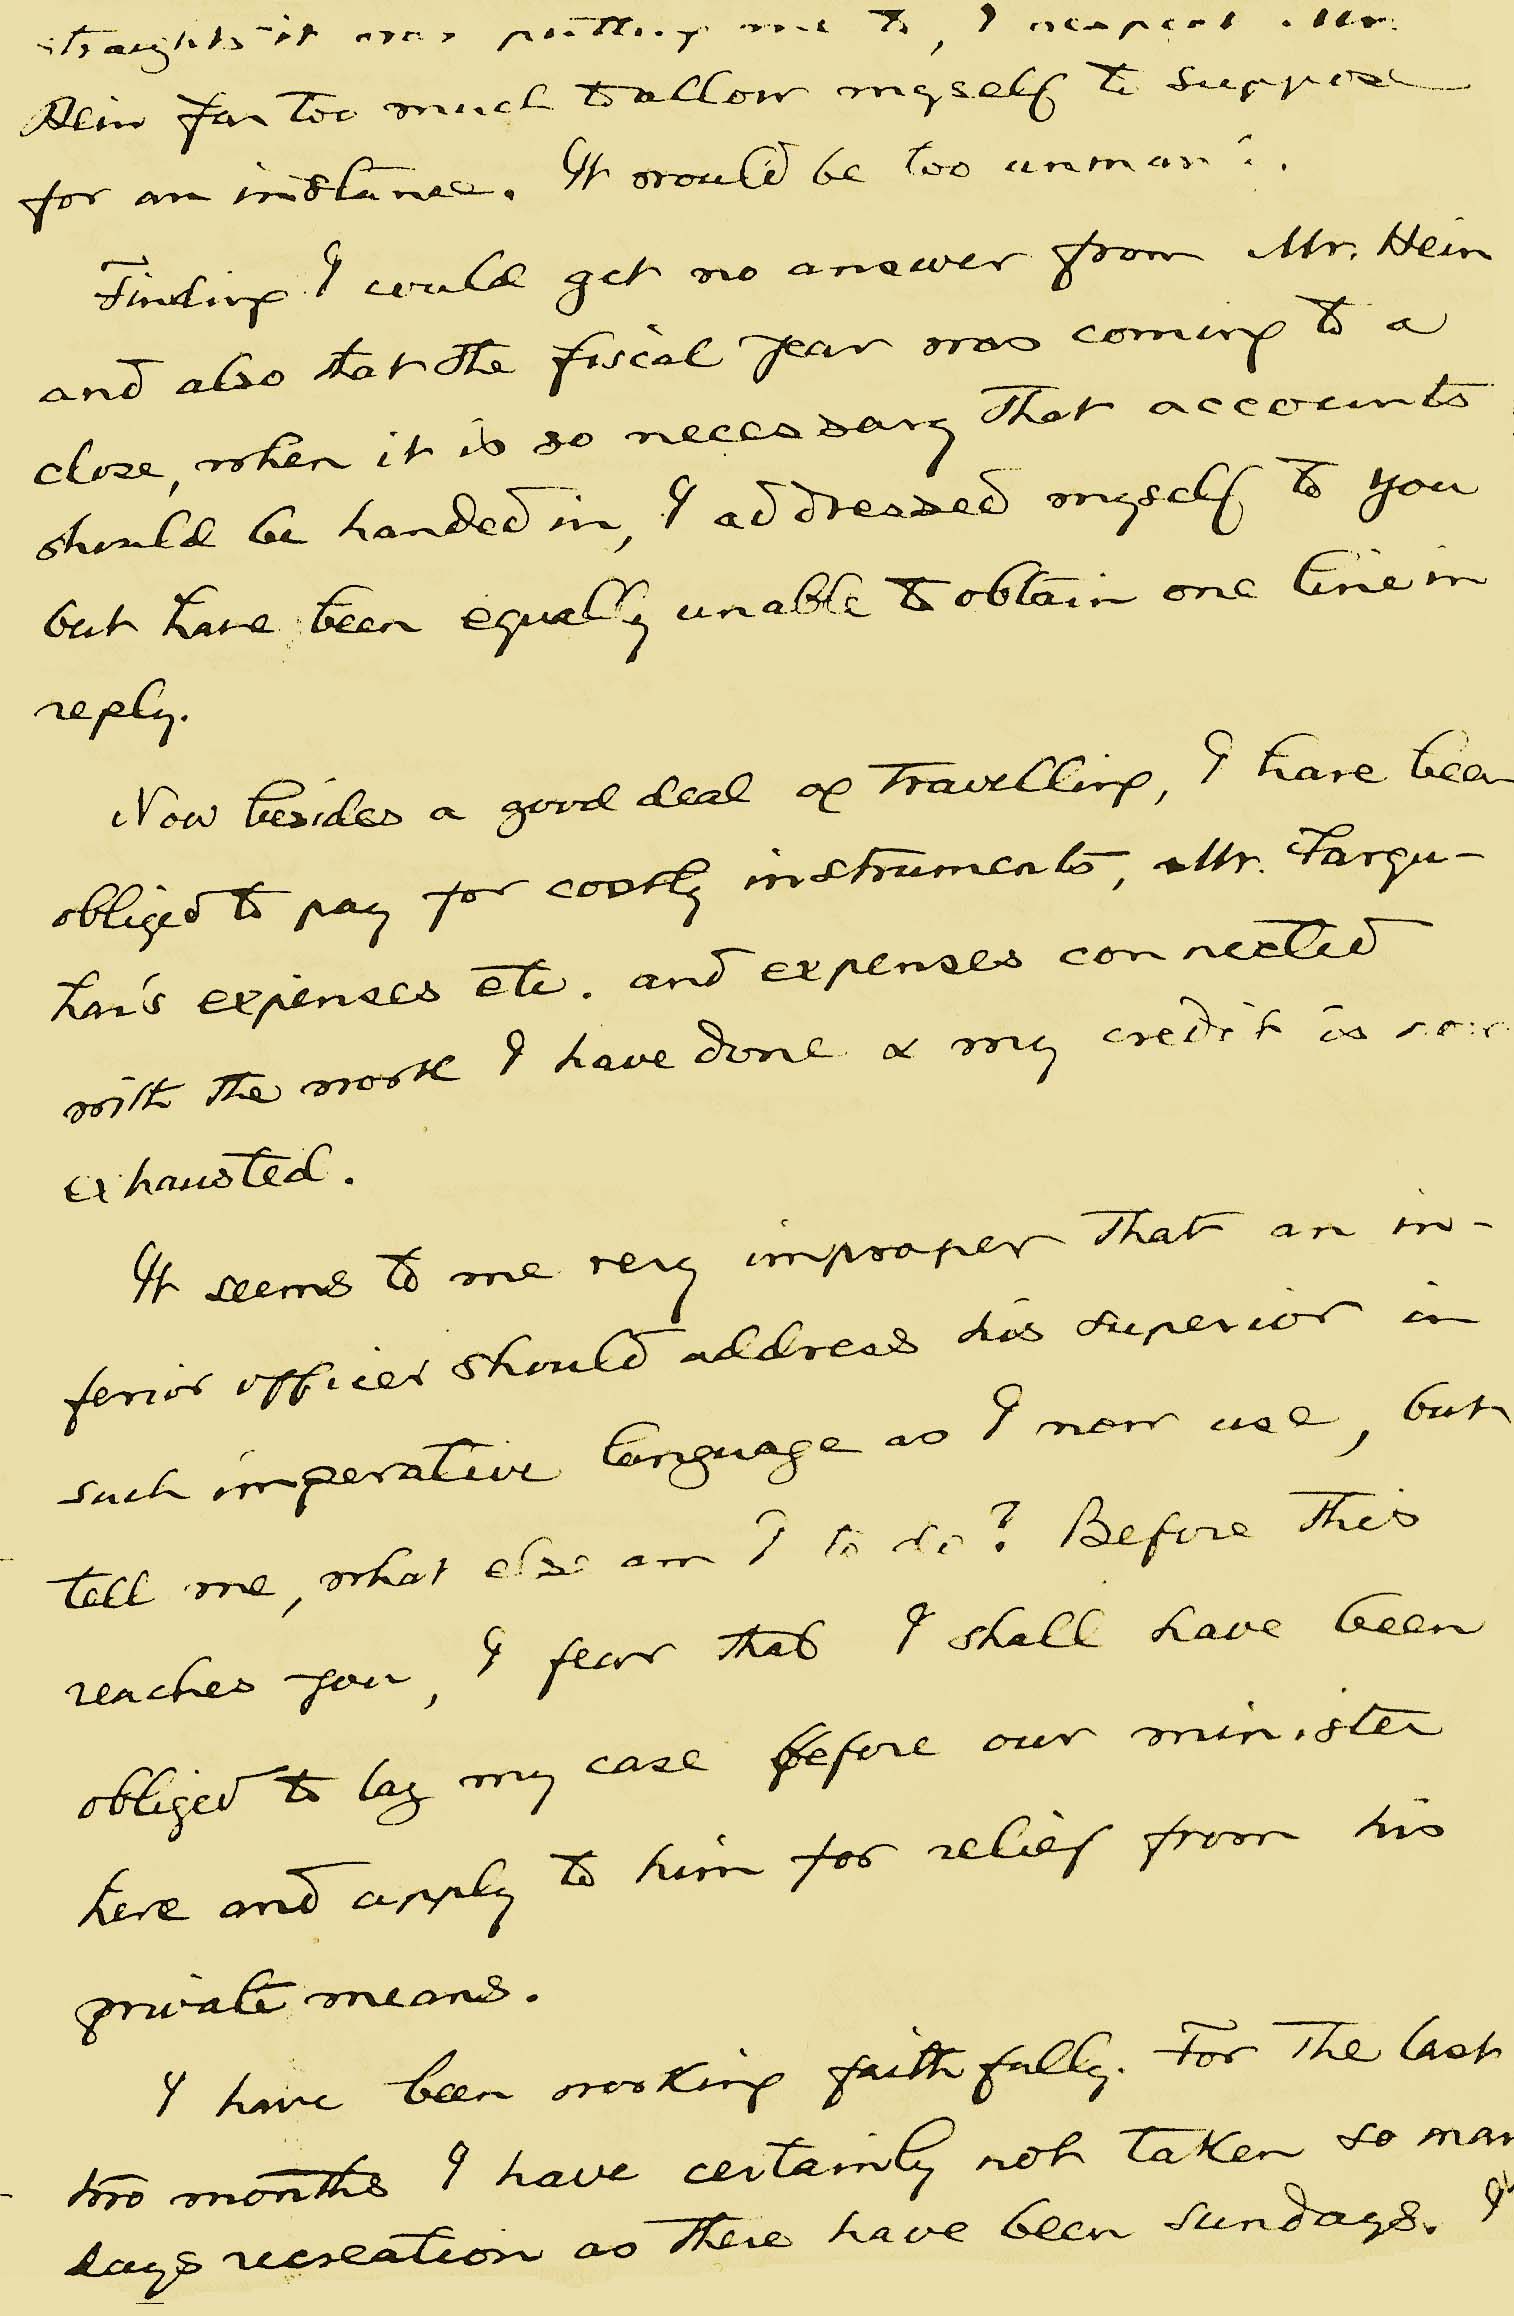 straights it was putting me to, I respect Mr.
Hein far too much to allow myself to suppose
for an instance. It would be too
Finding I could get no answer from Mr. Hein
and also that the fiscal year was coming to a
close, when it is so necessary that accounts
should be handed in, I addressed myself to you
but have been equally unable to obtain one line in
reply.
Now besides a good deal of travelling, I have been
obliged to pay for costly instruments, Mr. Farqu-
har's expenses etc. and expenses connected
with the work I have done & my credit is now
exhausted.
It seems to me very improper that an in-
ferior officer should address his superior in
such imperative language as I now use, but
tell me, what else am I to do? Before this
reaches you, I fear that I shall have been
obliged to lay my case before our minister
here and apply to him for relief from his
private means.
I have been working faithfully. For the last
two months I have certainly not taken so man
days recreation as there have been Sundays. I